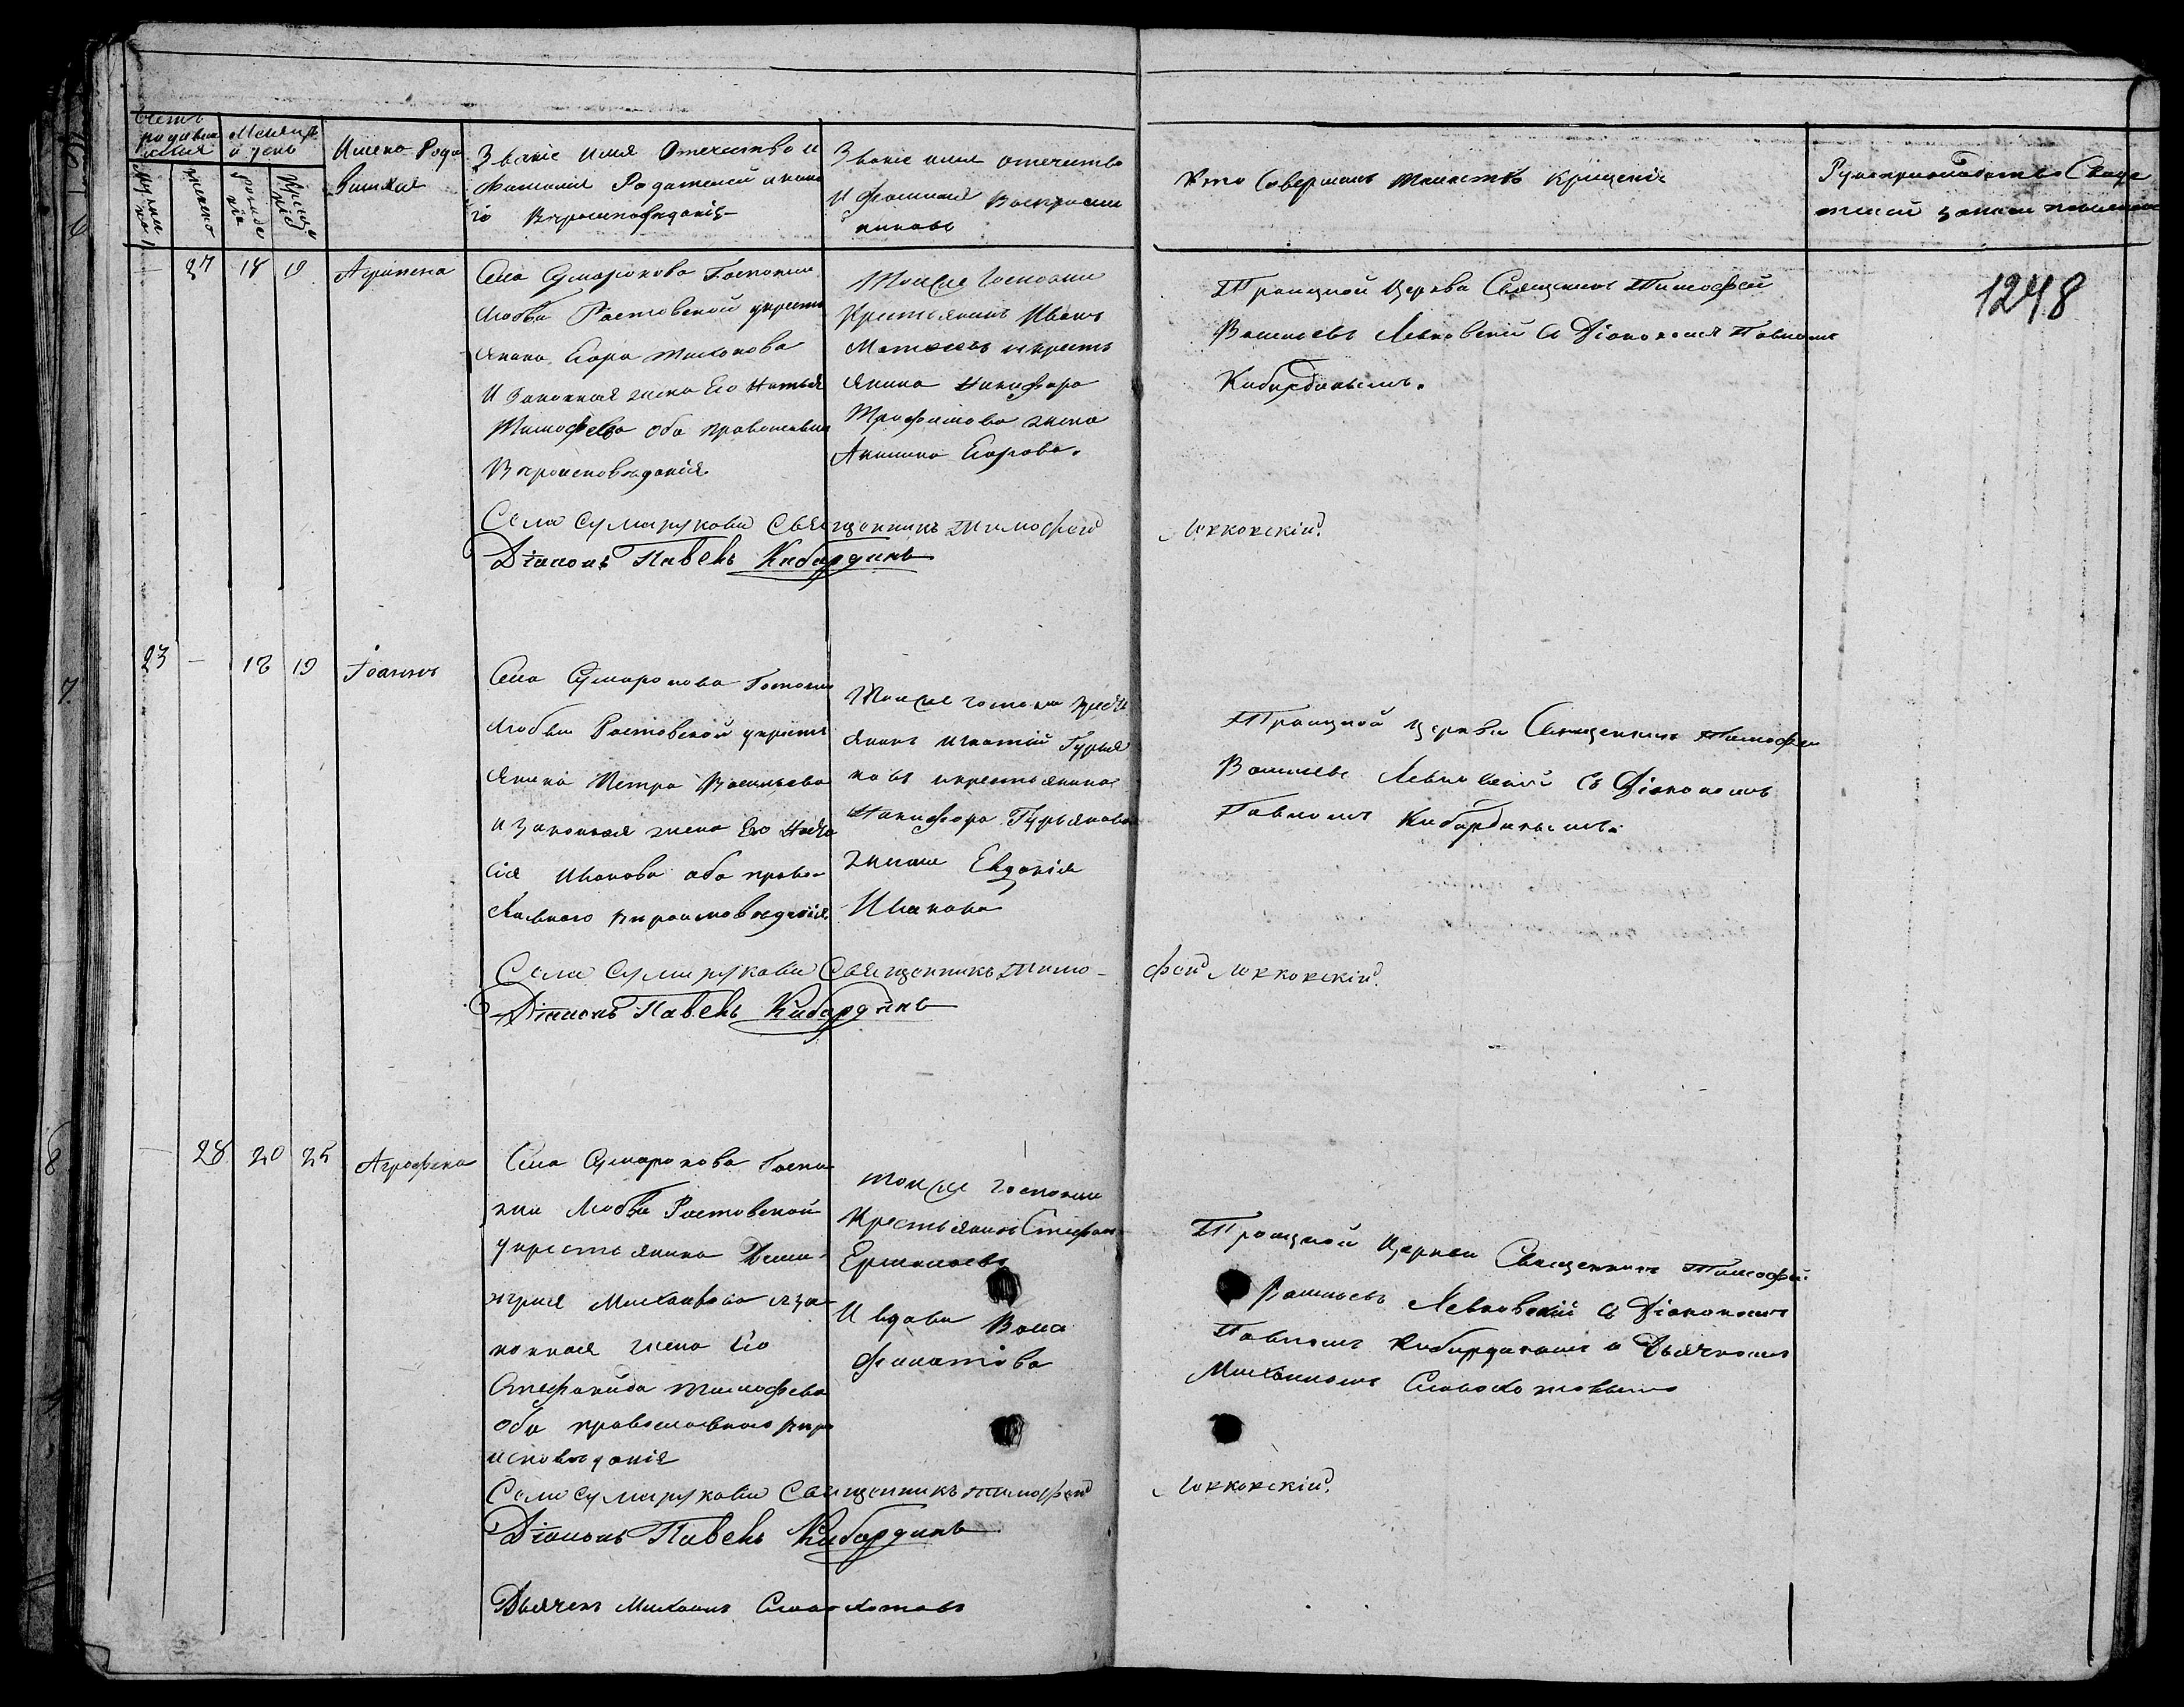 Счетъ
родивш
ихся
Месяцъ
и день
Имена Роди
вшихся
Званіе Имя Отечество и
Фамилія Родителей и како
го Вероисповеданія
Званіе имя отечество
И Фамилия Воспріем
никовъ
Кто Совершалъ Таинство Крещенія
Рукоприкладство Свиде
1248
женско
рожде
нія
Креще
нія
27 18 19 Агрипена
Села Сумарокова Госпожи
Любви Ростовской у крестья
янина Егора Тихонова
И Законная жена Его Наталья
Тимофеева оба православнаго
Вероисповеданія
Тойже Госпожи
Крестьянинъ Иванъ
и кресть
янина Никифора
Трофимова жена
Акилина Егорова.
Троицкой Церкви Священникъ Тимофей
Васильевъ Левковский съ Діакономъ Павломъ
Кибардинымъ.
Села Сумарукова Священникъ Тимофей Левковскій.
Діаконъ Павелъ Кибардинъ
23 — 18 19 Іоаннъ
Села Сумарокова Госпожи
Любви Ростовской у кресть
янина Петра Васильева
и законная жена Его Наста
сія Иванова оба право-
славнаго вероисповеданія.
Тойже госпожи кресть
янинъ Игнатій Гурья
новъ и крестьянина
Никифора Гурьянова
жена Евдокія
Иванова
Троицкой церкви Священникъ Тимофей
Васильевъ Левковский съ Діакономъ
Павломъ Кибардинымъ.
Села Сумарукова Священникъ Тимо- фей Левковскій.
Діаконъ Павелъ Кибардинъ
— 28 20 25 Агрофена
Села Сумарокова Госпо
жи Любви Ростовской
у крестьянина Дими-
трія Михайлова и за
конная жена Его
Стефанида Тимофеева
оба православнаго веро
исповеданія
тойже госпожи
Крестьянинъ Стефанъ
Ермолаевъ
И вдова Васа
Филатова
Троицкой Церкви Священникъ Тимофей
Васильевъ Левковский съ Діакономъ
Павломъ Кибардинымъ и Дьячкомъ
Михаиломъ
Села Сумарукова Священникъ Тимофей Левковскій.
Діаконъ Павелъ Кибардинъ
Дьячекъ Михаилъ